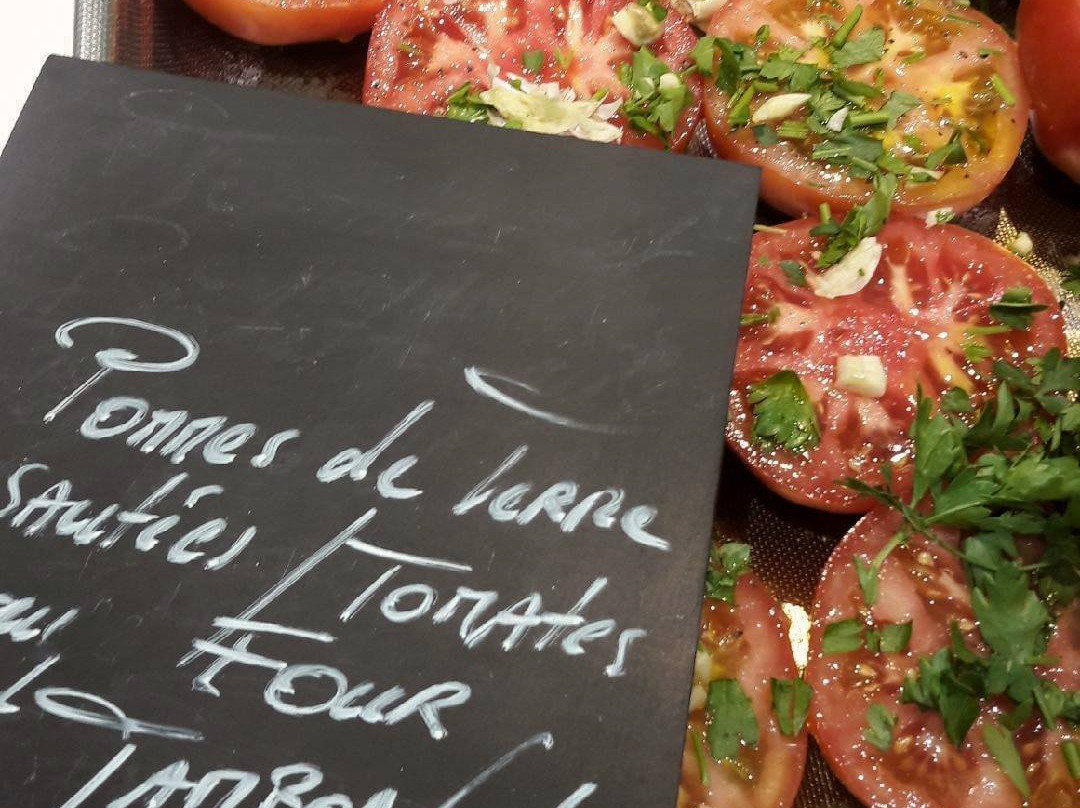 Pommes de Terre
sautées / Tomates
au Four